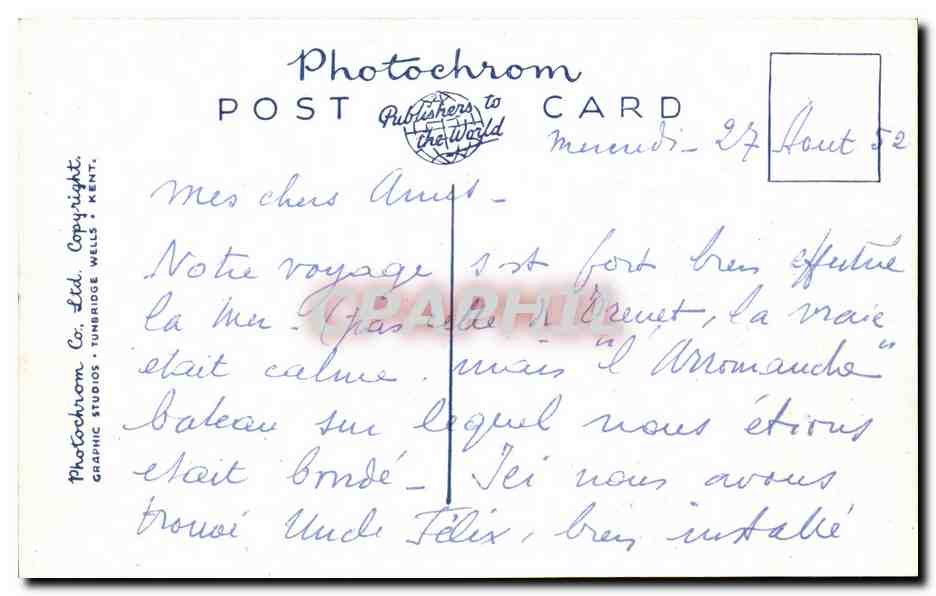 Photochrom
POST CARD
Publishers to
the World
Mercredi - 27 Aout 52
Mes chers Amis -
Notre voyage s'est fort bien effectué
la mer - (pas celle de Trenet, la vraie
etait calme . mais "l'Arromanche"
bateau sur lequel nous étions
etait bondé - Ici nous avons
trouvé Uncle Félix, bien installé
Photochrom Co., Ltd. Copyright.
GRAPHIC STUDIOS • TUNBRIDGE WELLS • KENT.
CPAPHIL